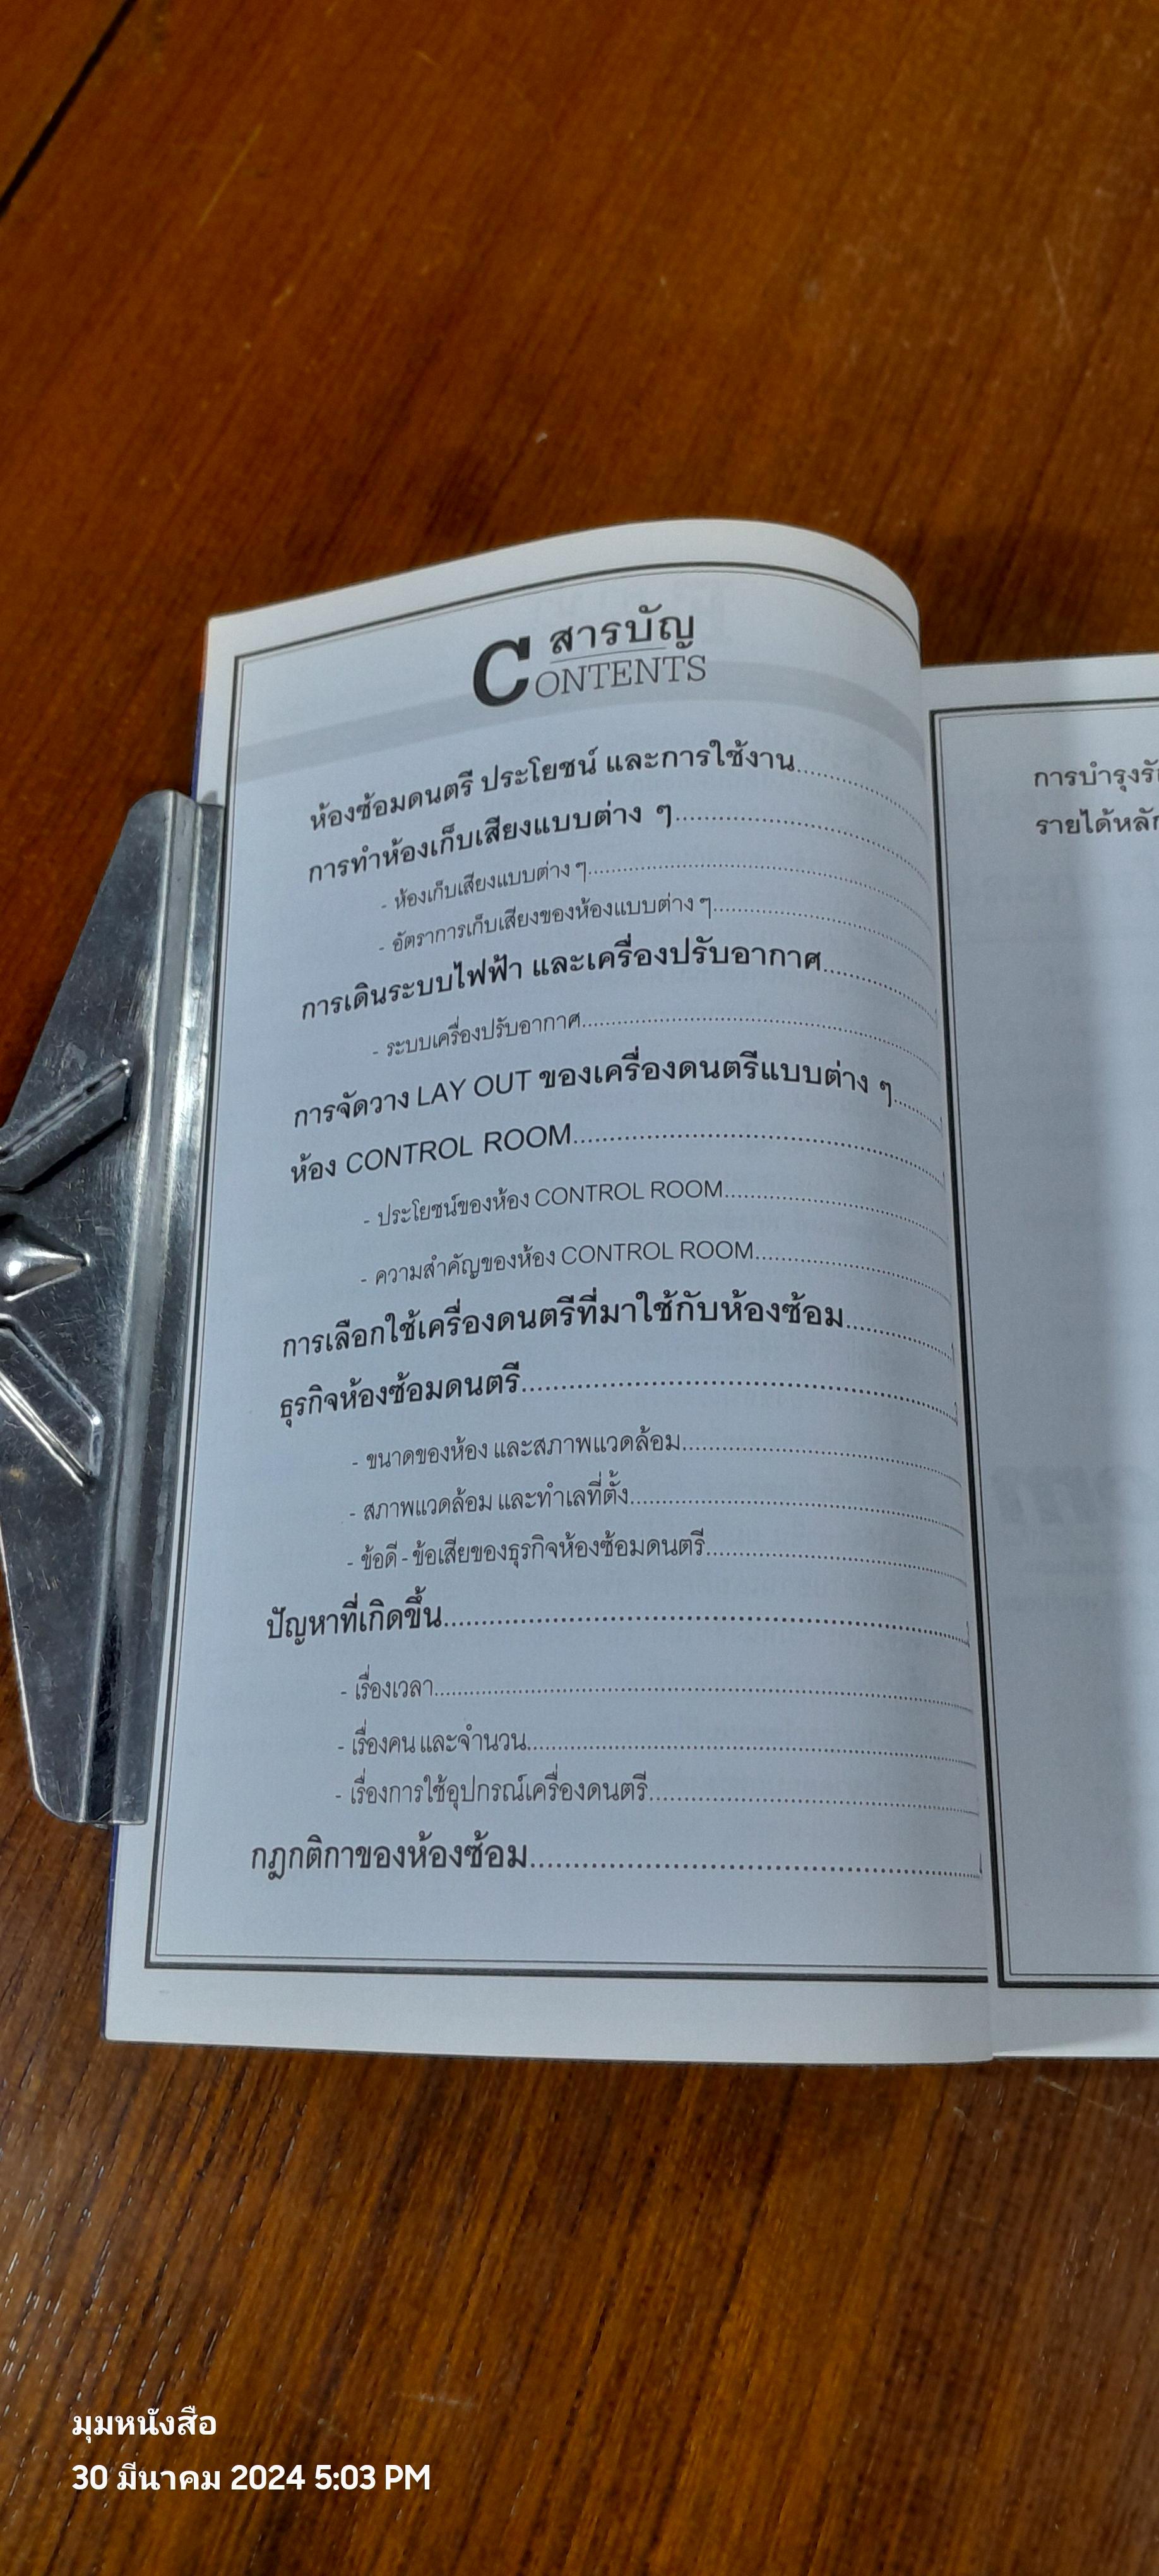 สารบัญ
CONTENTS
ห้องซ้อมดนตรี ประโยชน์ และการใช้งาน
การทำห้องเก็บเสียงแบบต่าง ๆ
- ห้องเก็บเสียงแบบต่าง ๆ
- อัตราการเก็บเสียงของห้องแบบต่าง ๆ
การเดินระบบไฟฟ้า และเครื่องปรับอากาศ
- ระบบเครื่องปรับอากาศ
การจัดวาง LAY OUT ของเครื่องดนตรีแบบต่าง ๆ
ห้อง CONTROL ROOM
- ประโยชน์ของห้อง CONTROL ROOM
- ความสำคัญของห้อง CONTROL ROOM
การเลือกใช้เครื่องดนตรีที่มาใช้กับห้องซ้อม
ธุรกิจห้องซ้อมดนตรี
- ขนาดของห้อง และสภาพแวดล้อม
- สภาพแวดล้อม และทำเลที่ตั้ง
- ข้อดี - ข้อเสียของธุรกิจห้องซ้อมดนตรี
ปัญหาที่เกิดขึ้น
- เรื่องเวลา
- เรื่องคน และจำนวน
- เรื่องการใช้อุปกรณ์เครื่องดนตรี
กฎกติกาของห้องซ้อม
การบำรุง
รายได้
มุมหนังสือ
30 มีนาคม 2024 5:03 PM